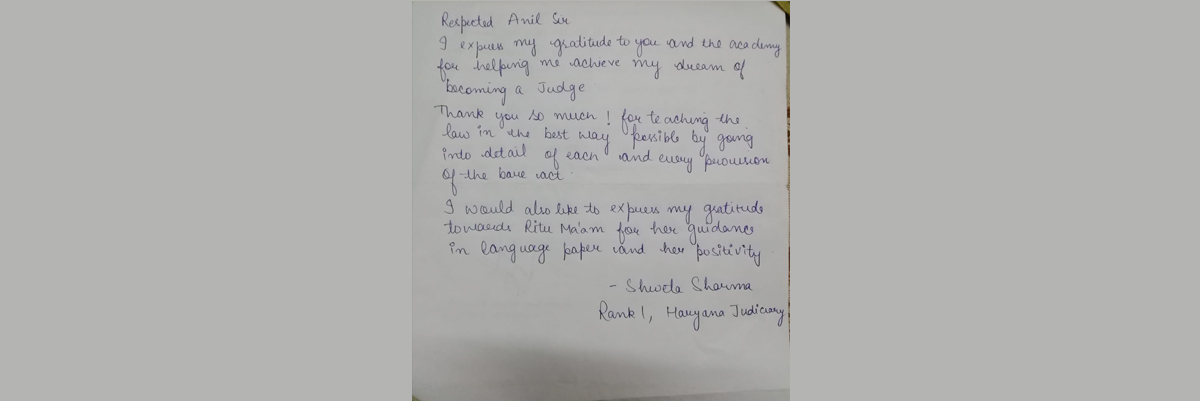 Respected Anil Sir
I express my gratitude to you and the academy
for helping me achieve my dream of
becoming a Judge
Thank you so much ! for teaching the
law in the best way possible by going
into detail of each and every provision
of the bare act.
I would also like to express my gratitude
towards Ritu Ma'am for her guidance
in language paper and her positivity
- Shweta Sharma
Rank 1, Haryana Judiciary